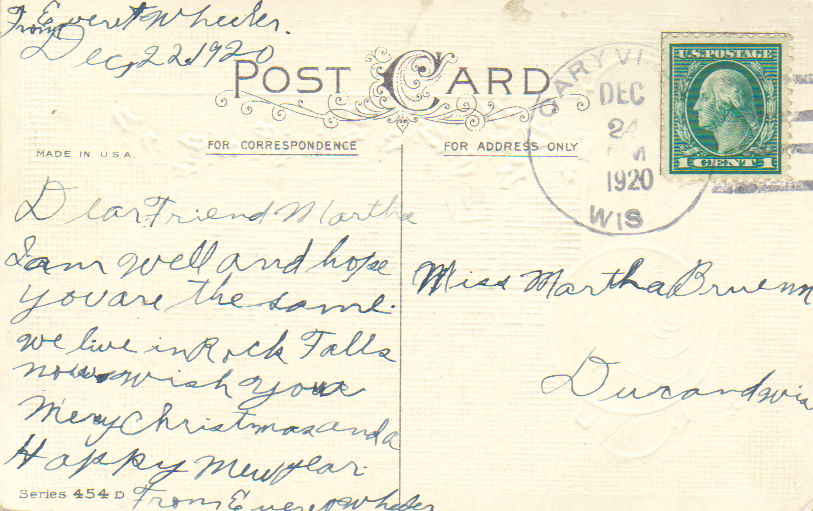 From Everet Wheeler.
Dec, 22. 1920
POST CARD
FOR CORRESPONDENCE
FOR ADDRESS ONLY
MADE IN U.S.A.
U.S. POSTAGE
1 CENT 1
CARYVI
DEC
24
M
1920
WIS
Dear Friend Martha
I am well and hope
you are the same.
we live in Rock Falls
now. wish you a
Merry Christmas and a
Happy New year.
From Everet Wheeler
Miss Martha Bruenn
Durand Wis
Series 454 D